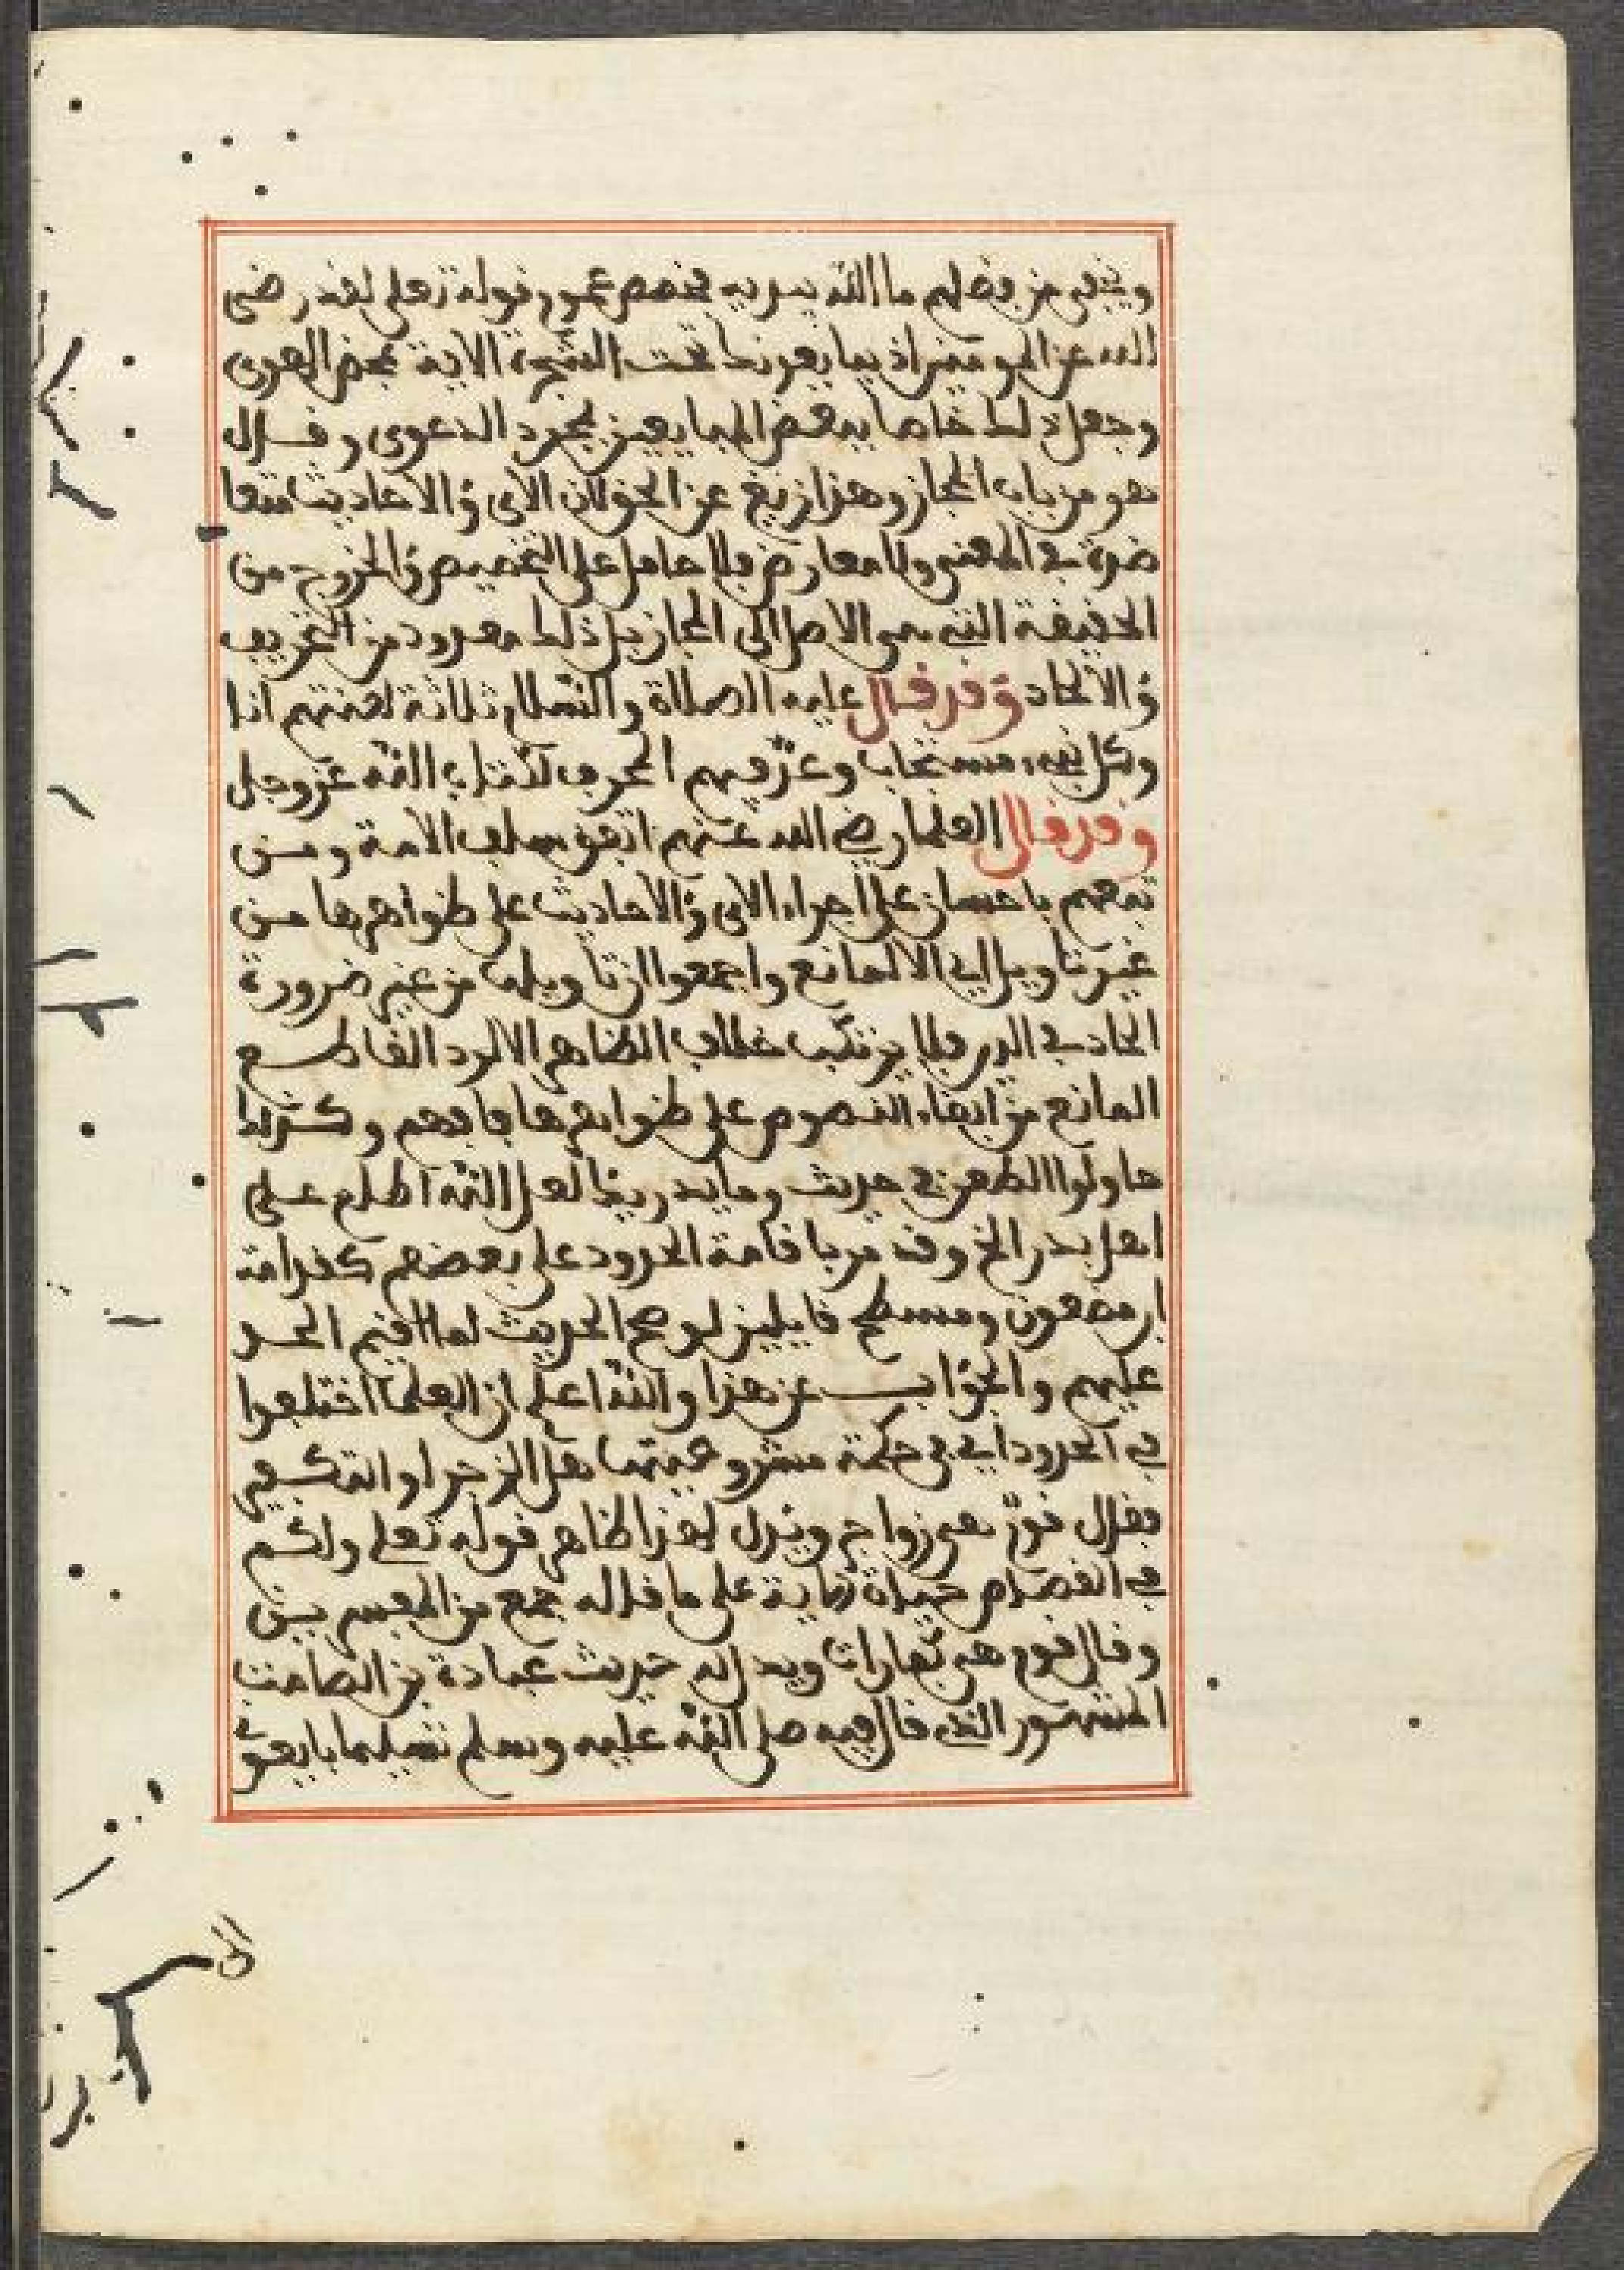 وينفي من فضلهم ما الله مبديه فخصص عموم قوله تعلى لقد رضي
الله عن المومنين اذ يبايعونك تحت الشجرة الاية بمحض الهوى
وجعل ذلك خاصا ببعض المبايعين بمجرد الدعوى وقال
هو من باب المجاز وهذا زيغ عن الحق لان الاي والاحاديث متعا
ضدة في المعنى ولا معارض فلا حامل على التخصيص والخروج من
الحقيقة التي هي الاصل الى المجاز بل ذلك معدود من التحريف
والالحاد وقد قال عليه الصلاة والسلام ثلاثة لعنتهم انا
وكل نبيء مستجاب وعد منهم المحرف لكتاب الله عز وجل
وقد قال العلما رضي الله عنهم اتفق سلف الامة ومن
تبعهم باحسان على اجراء الاي والاحاديث على ظواهرها من
غير تاويل الي الا لمانع واجمعوا ان تاويلها من غير ضرورة
الحاد في الدين فلا يرتكب خلاف الظاهر الا لرد القاطع
المانع من ابقاء النصوص على ظواهرها فافهم وكذلك
حاولوا الطعن في حديث وما يدريك لعل الله اطلع على
اهل بدر الخ وقد مر باقامة الحدود على بعضهم كقدامة
ابن مضعون ومسطح قايلين لو صح الحديث لما اقيم الحد
عليهم والجواب عن هذا والله اعلم ان العلما اختلفوا
في الحدود اي في حكمة مشروعيتها هل الزجر او التكفير
فقال قوم هي زواجر ويدل لهذا ظاهر قوله تعلى ولكم
في القصاص حياة الاية على ما قاله جمع من المفسرين
وقال قوم هي كفارات ويدل له حديث عبادة بن الصامت
المشهور الذي قال فيه صلى الله عليه وسلم تسليما بايعو